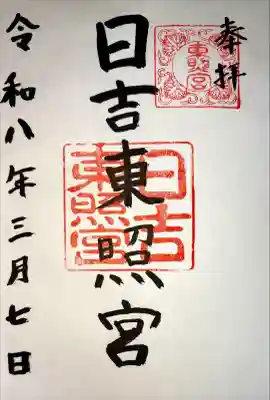 奉拝
東照宮
日吉東照宮
日吉
東照宮
令和八年三月七日